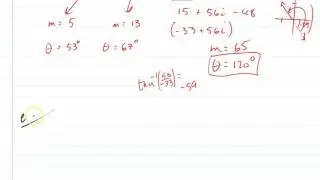 15 + 56i - 48
m = 5 m = 13 (-33 + 56i)
θ = 53° θ = 67° m = 65
θ = 120°
tan⁻¹(56/-33) = -59
e.